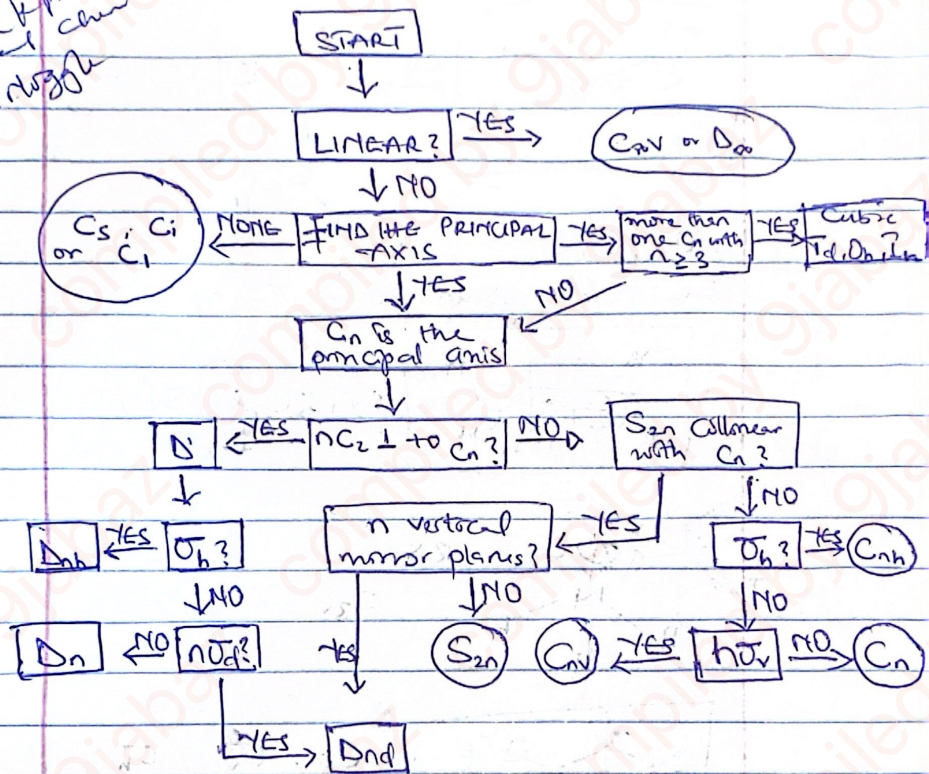 START
LINEAR?
YES
C∞v or D∞
NO
Cs, Ci
or C1
NONE
FIND THE PRINCIPAL
AXIS
YES
more than
one Cn with
n ≥ 3
YES
Cubic
Td, Oh, Ih
YES
NO
Cn is the
principal axis
D
YES
nC2 ⊥ to Cn?
NO
S2n Collinear
with Cn?
NO
Dnh
YES
σh?
n vertical
mirror planes?
YES
σh?
YES
Cnh
NO
NO
NO
Dn
NO
nσd?
YES
S2n
Cnv
YES
nσv
NO
Cn
YES
Dnd
compiled by 9jabaz